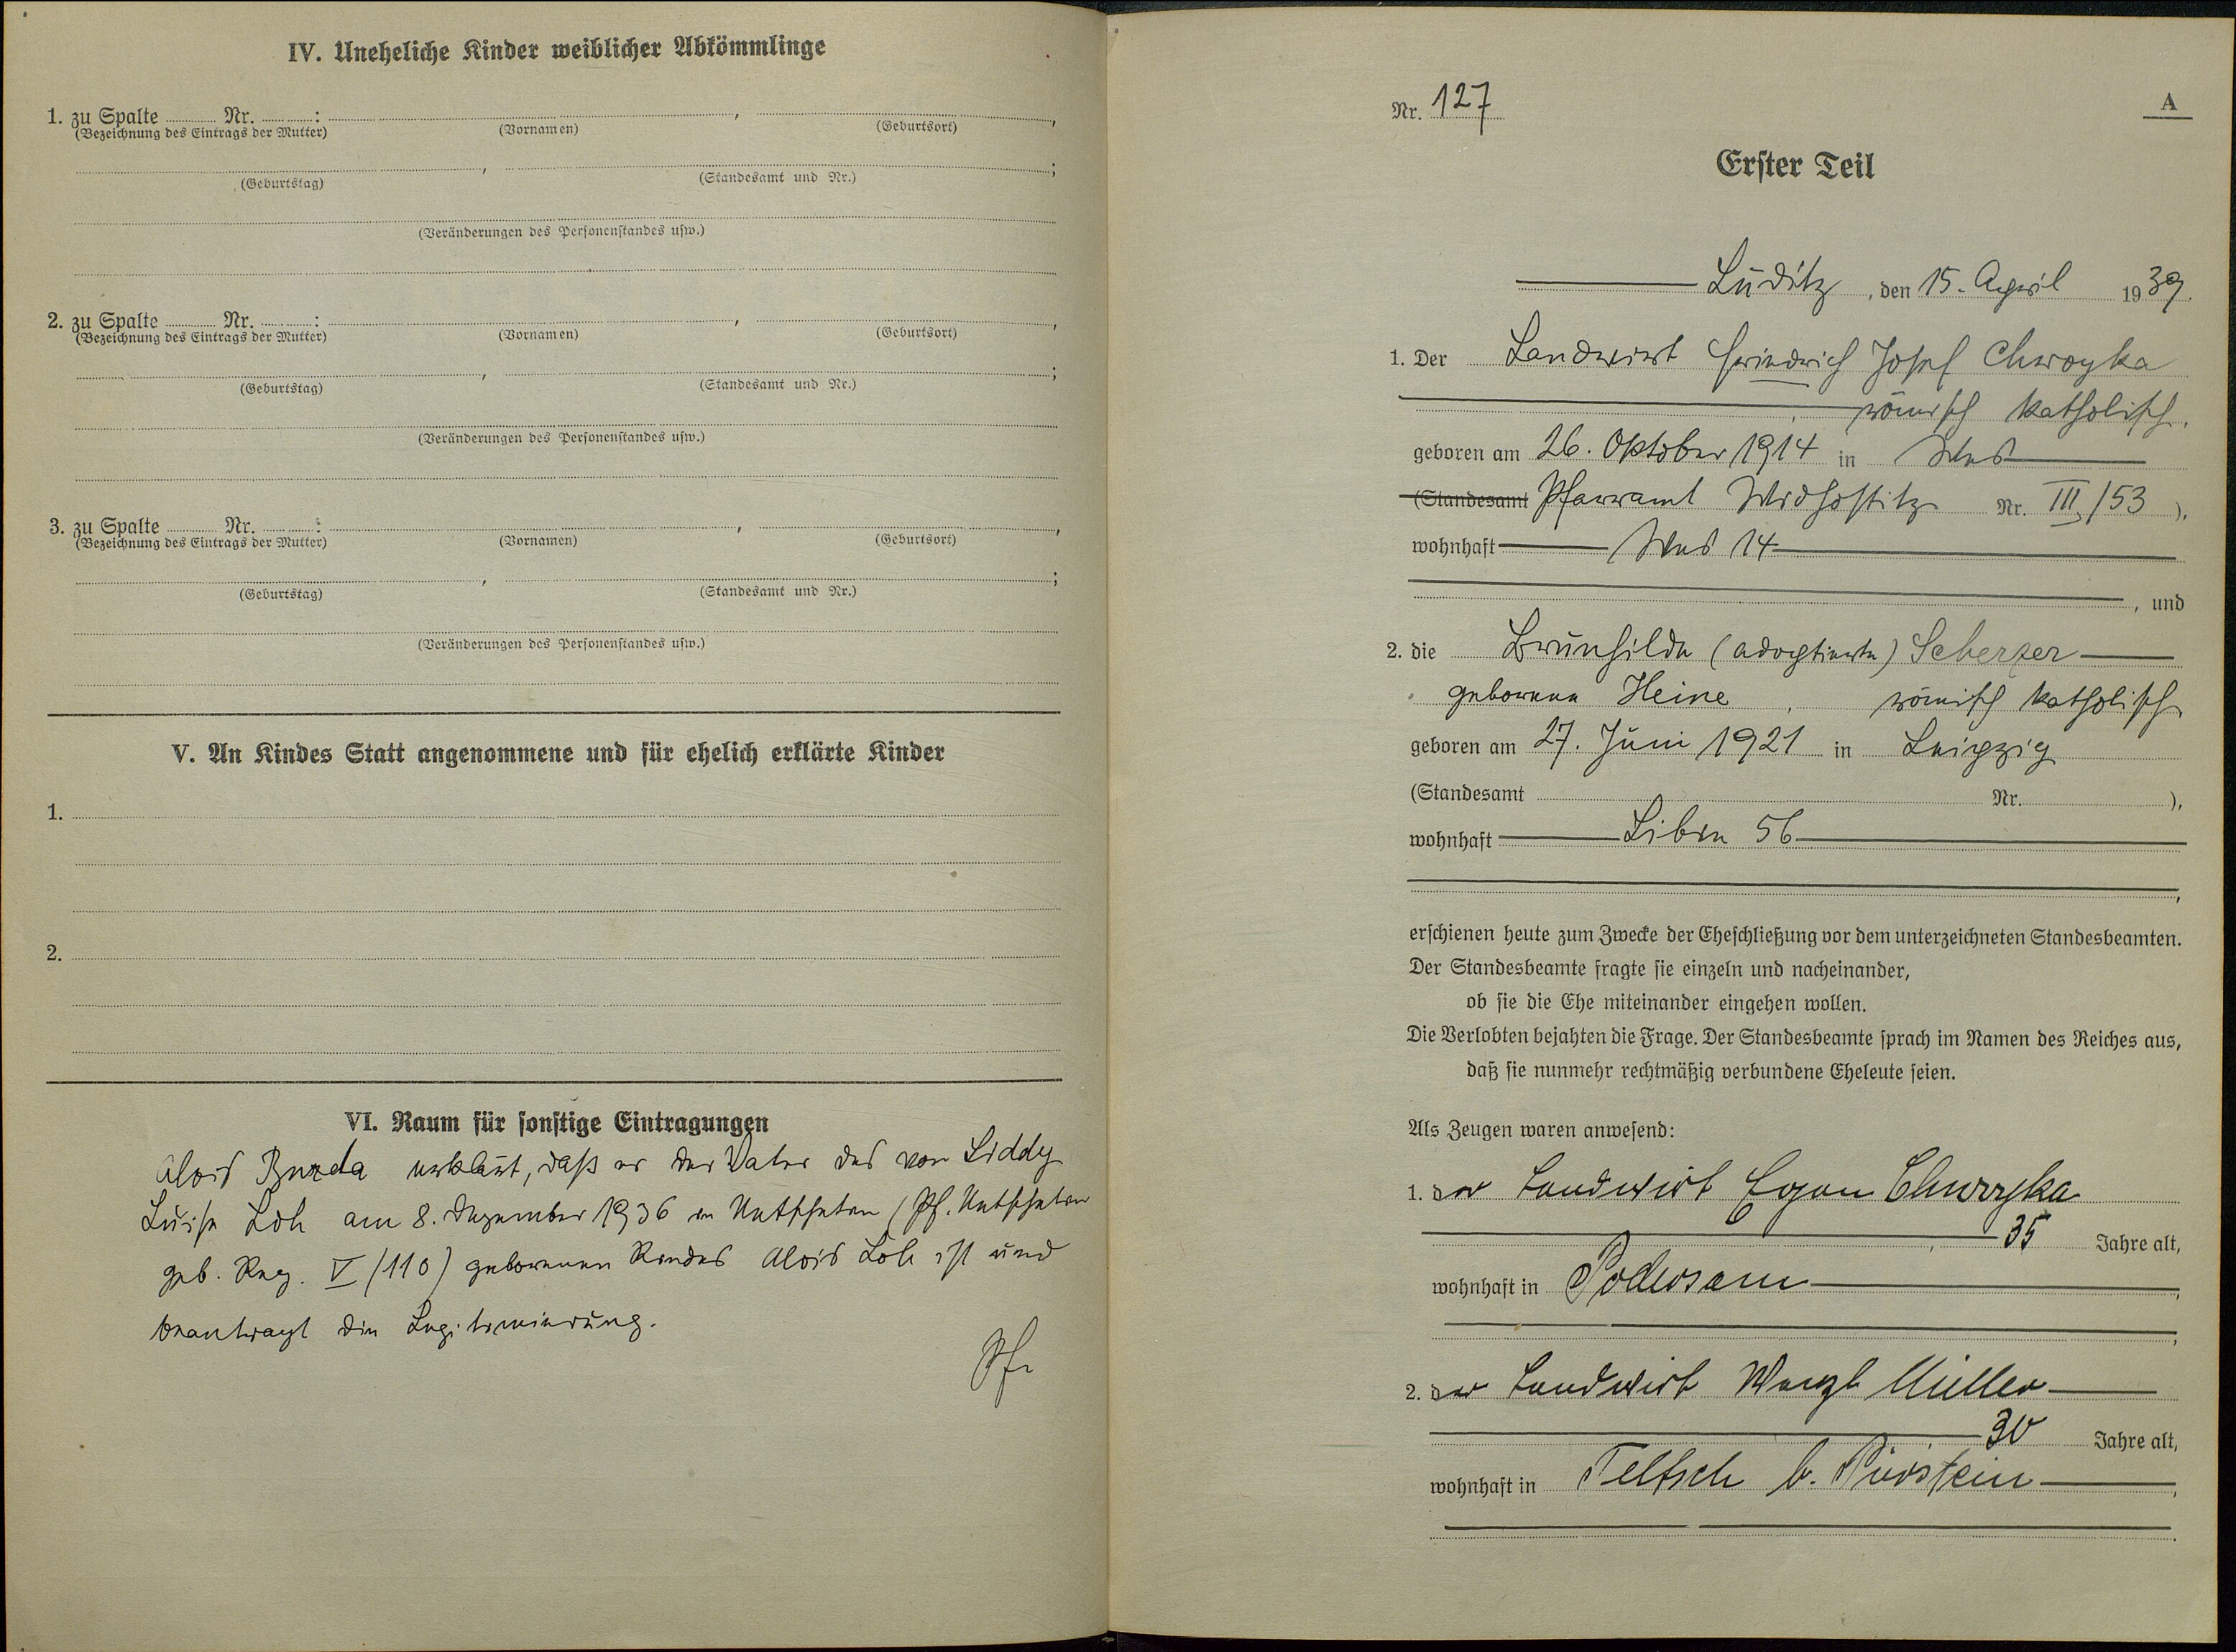 IV. Uneheliche Kinder weiblicher Abkömmlinge
1. zu Spalte ........ Nr. ........ : ........ , ........ ,
(Bezeichnung des Eintrags der Mutter) (Vornamen) (Geburtsort)
........ , ........ ;
(Geburtstag) (Standesamt und Nr.)
(Veränderungen des Personenstandes usw.)
2. zu Spalte ........ Nr. ........ : ........ , ........ ,
(Bezeichnung des Eintrags der Mutter) (Vornamen) (Geburtsort)
........ , ........ ;
(Geburtstag) (Standesamt und Nr.)
(Veränderungen des Personenstandes usw.)
3. zu Spalte ........ Nr. ........ : ........ , ........ ,
(Bezeichnung des Eintrags der Mutter) (Vornamen) (Geburtsort)
........ , ........ ;
(Geburtstag) (Standesamt und Nr.)
(Veränderungen des Personenstandes usw.)
V. An Kindes Statt angenommene und für ehelich erklärte Kinder
1.
2.
VI. Raum für sonstige Eintragungen
Alois Burda erklärt, daß er der Vater des von Liddy
Luise Löh am 8. Dezember 1936 in Netschetin (Pf. Netschetin
geb. Reg. V/110) geborenen Kindes Alois Löh ist und
beantragt die Legitimierung.
Nr. 127
A
Erster Teil
Luditz, den 15. April 1939.
1. Der Landwirt Friedrich Josef Chwoyka
, römisch katholisch,
geboren am 26. Oktober 1914 in Wes
(Standesamt Pfarramt Widhostitz Nr. III/53 ),
wohnhaft Wes 14
, und
2. die Brunhilde (adoptierte) Scherzer
geborene Heine , römisch katholisch
geboren am 27. Juni 1921 in Leipzig
(Standesamt Nr. ),
wohnhaft Libin 56
,
erschienen heute zum Zwecke der Eheschließung vor dem unterzeichneten Standesbeamten.
Der Standesbeamte fragte sie einzeln und nacheinander,
ob sie die Ehe miteinander eingehen wollen.
Die Verlobten bejahten die Frage. Der Standesbeamte sprach im Namen des Reiches aus,
daß sie nunmehr rechtmäßig verbundene Eheleute seien.
Als Zeugen waren anwesend:
1. der Landwirt Egon Chwoyka
, 35 Jahre alt,
wohnhaft in Podersam
,
2. der Landwirt Wenzl Müller
30 Jahre alt,
wohnhaft in Teltsch b. Pürstein ,
.